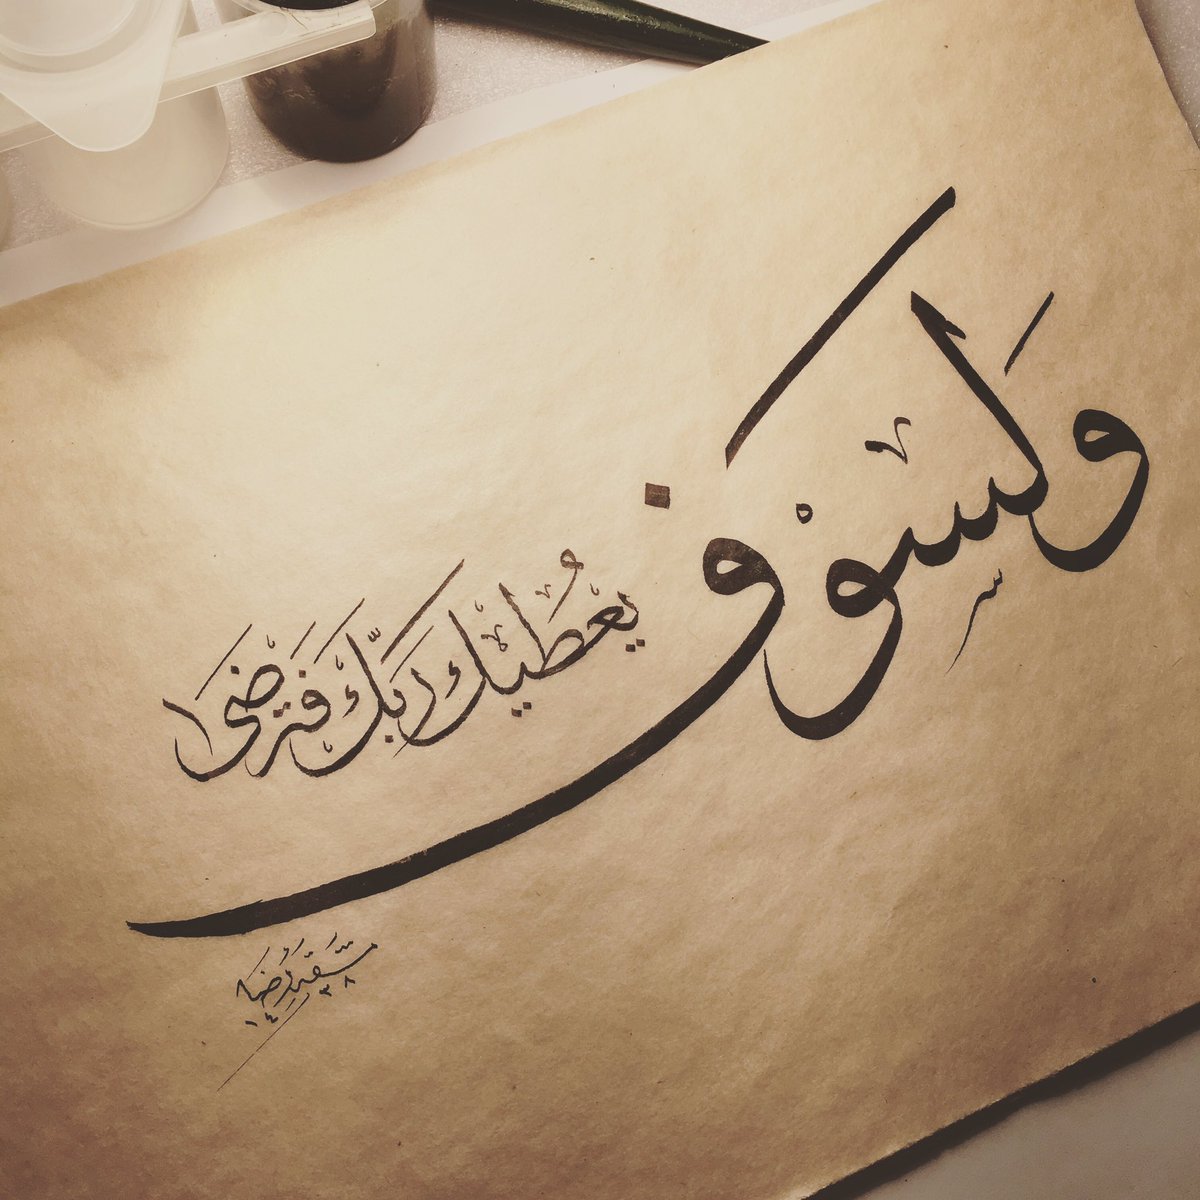 وَلَسَوْفَ
يُعْطِيكَ رَبُّكَ فَتَرْضَىٰ
١٤٣٨